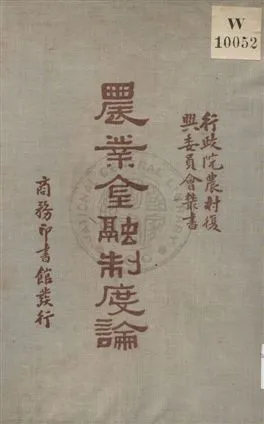 W
10052
行政院農村復
興委員會叢書
農業金融制度論
商務印書館發行